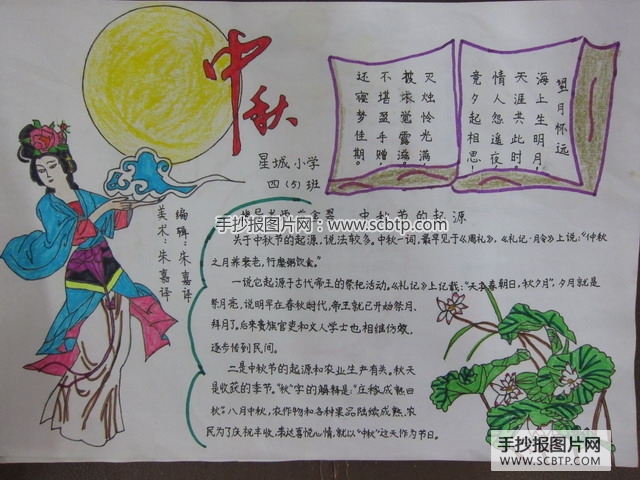 中秋
星城小学
四（5）班
望月怀远
海上生明月，
天涯共此时
情人怨遥夜，
竟夕起相思！
灭烛怜光满，
披衣觉露滋。
不堪盈手赠，
还寝梦佳期。
编辑：朱嘉译
美术：朱嘉译
手抄报图片网：www.scbtp.com
指导老师
中秋节的起源
关于中秋节的起源，说法较多。中秋一词，最早见于《周礼》，《礼记·月令》上说："仲秋
之月养衰老，行糜粥饮食。"
一说它起源于古代帝王的祭祀活动。《礼记》上记载："天子春朝日，秋夕月"，夕月就是
祭月亮，说明早在春秋时代，帝王就已开始祭月、
拜月了。后来贵族官吏和文人学士也相继仿效，
逐步传到民间。
二是中秋节的起源和农业生产有关。秋天
是收获的季节。"秋"字的解释是："庄稼成熟曰
秋"。八月中秋，农作物和各种果品陆续成熟，农
民为了庆祝丰收，表达喜悦心情，就以"中秋"这天作为节日。
手抄报图片网
WWW.SCBTP.COM